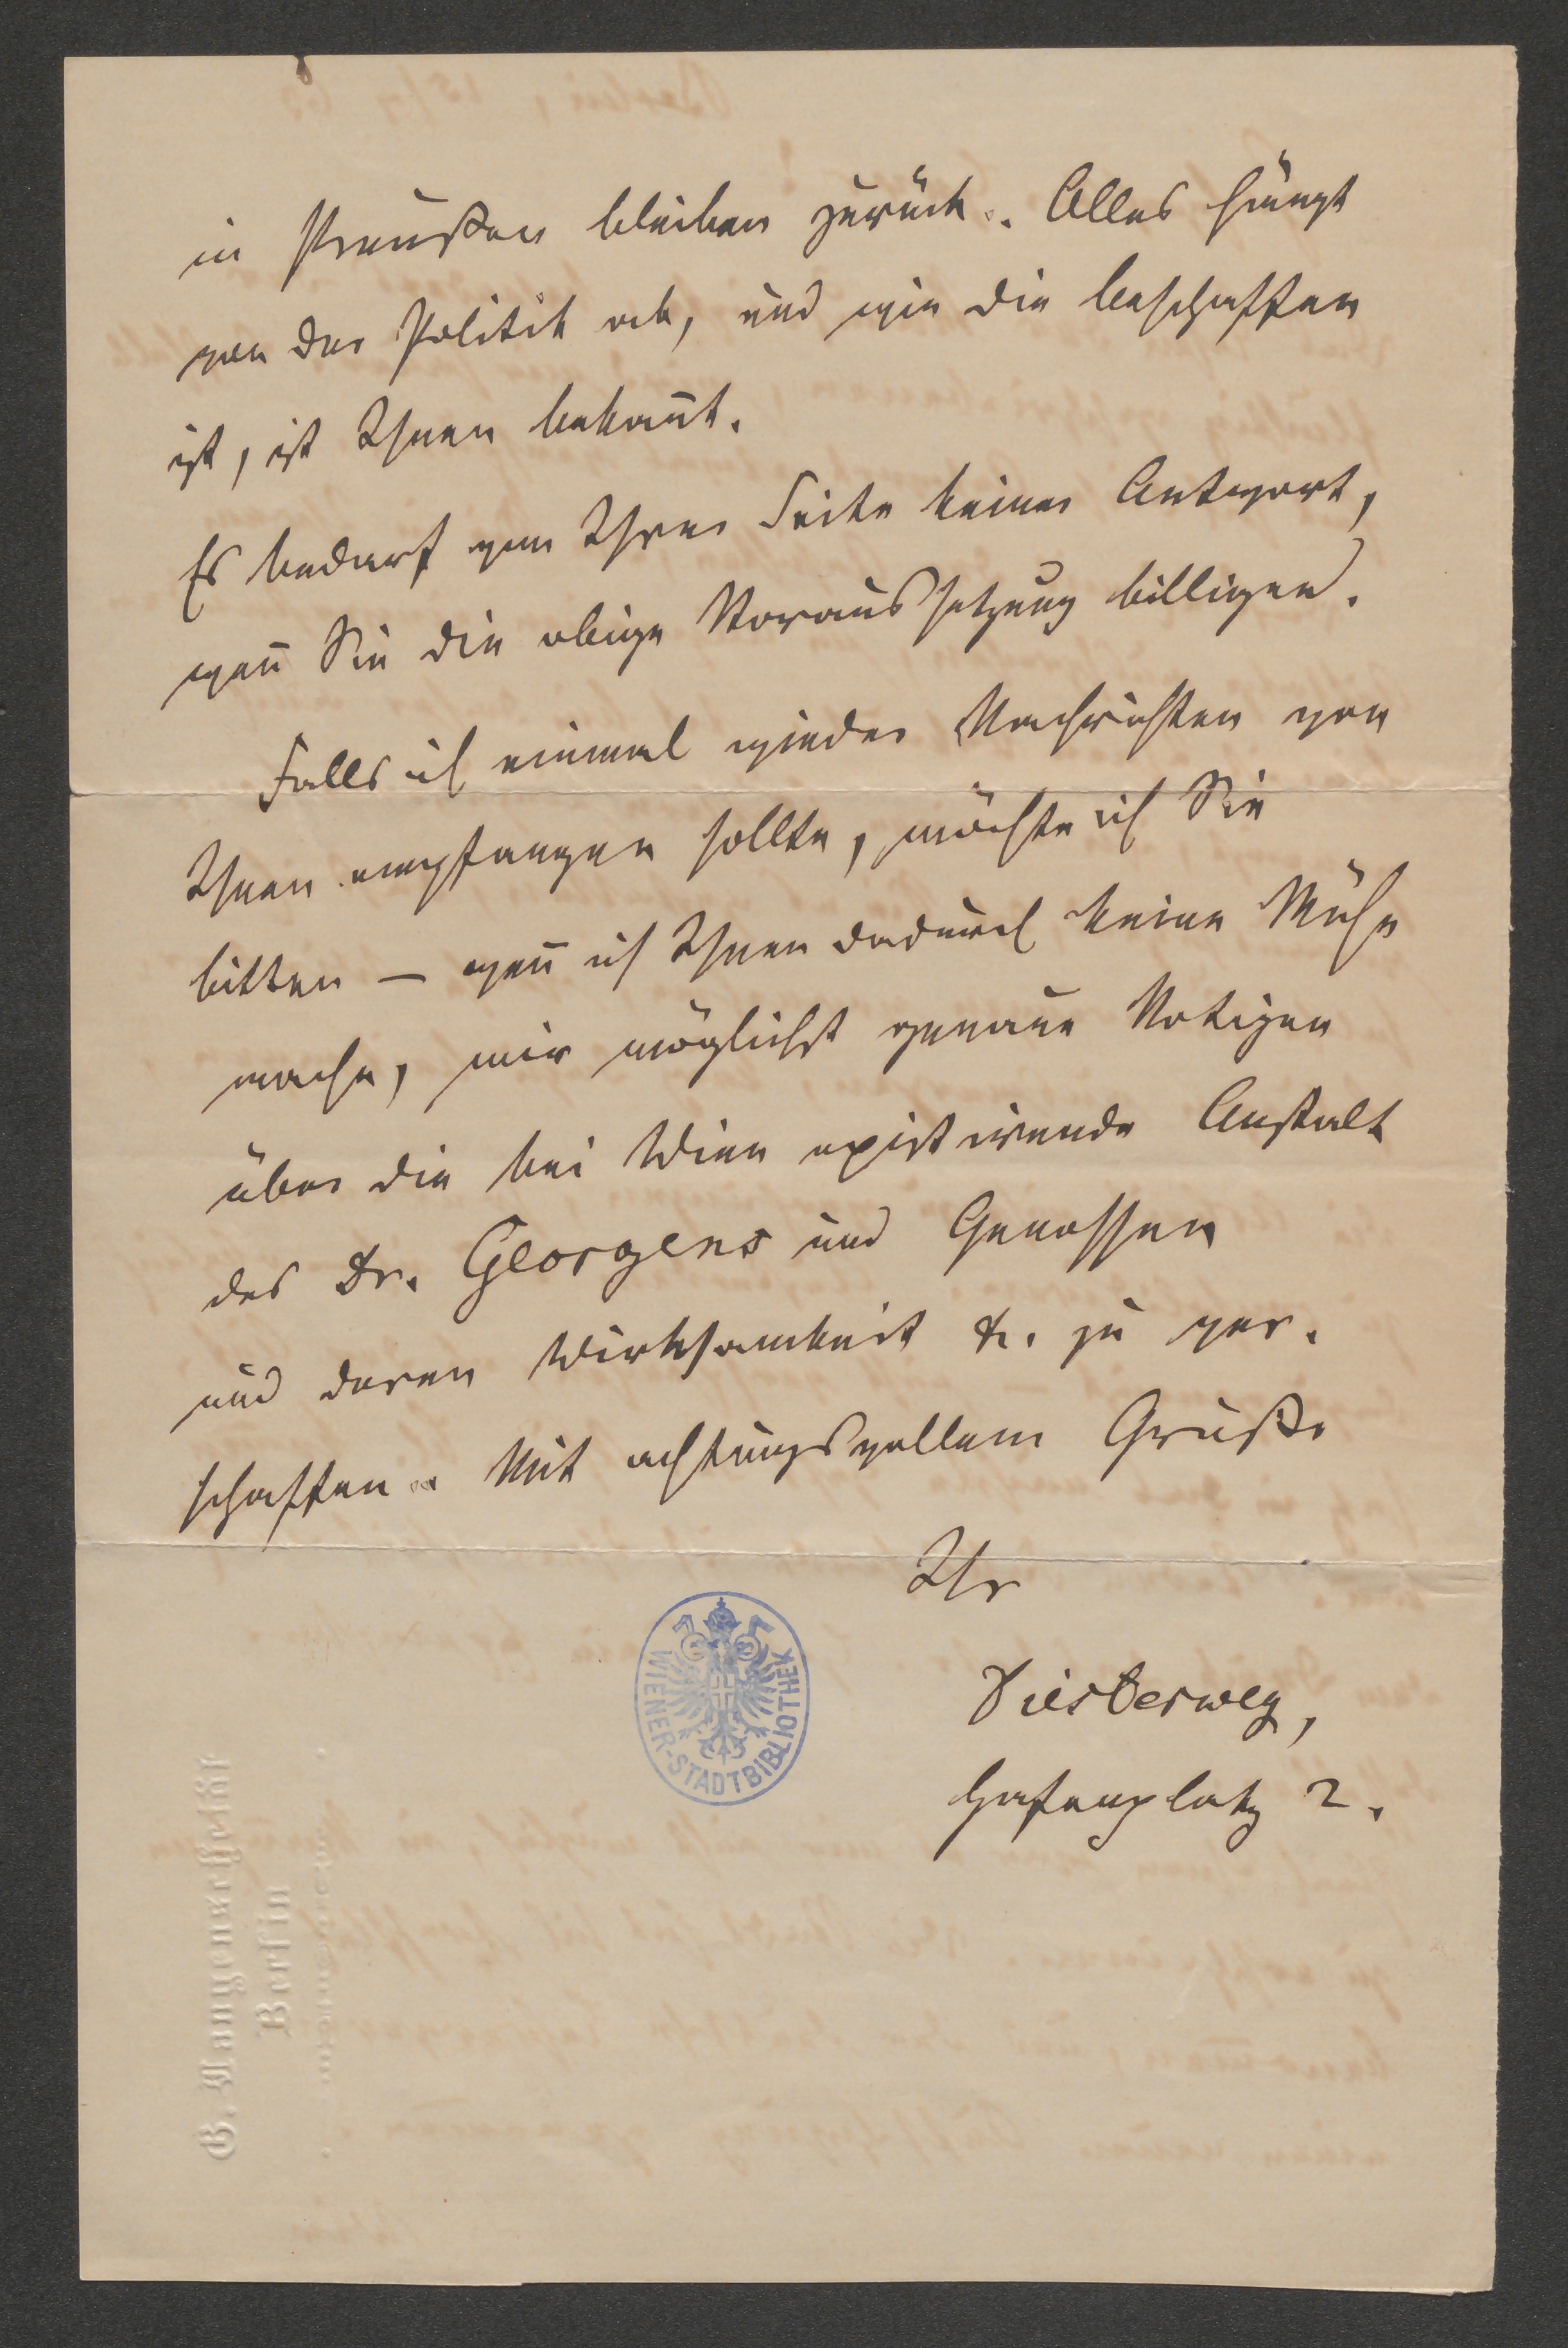 in Preußen bleiben zurück. Alles hängt
von der Politik ab, und wie die beschaffen
ist, ist Ihnen bekan̄t.
Es bedarf von Ihrer Seite keiner Antwort,
wen̄ Sie die obige Voraussetzung billigen.
Falls ich einmal wieder Nachrichten von
Ihnen empfangen sollte, möchte ich Sie
bitten – wen̄ ich Ihnen dadurch keine Mühe
mache, mir möglichst genaue Notizen
über die bei Wien existirende Anstalt
des Dr. Georgens und Genossen
und deren Wirksamkeit &. zu ver-
schaffen. Mit achtungsvollem Gruße
Ihr
Diesterweg,
Hafenplatz 2.
WIENER-STADTBIBLIOTHEK
G. Langenscheidt
Berlin